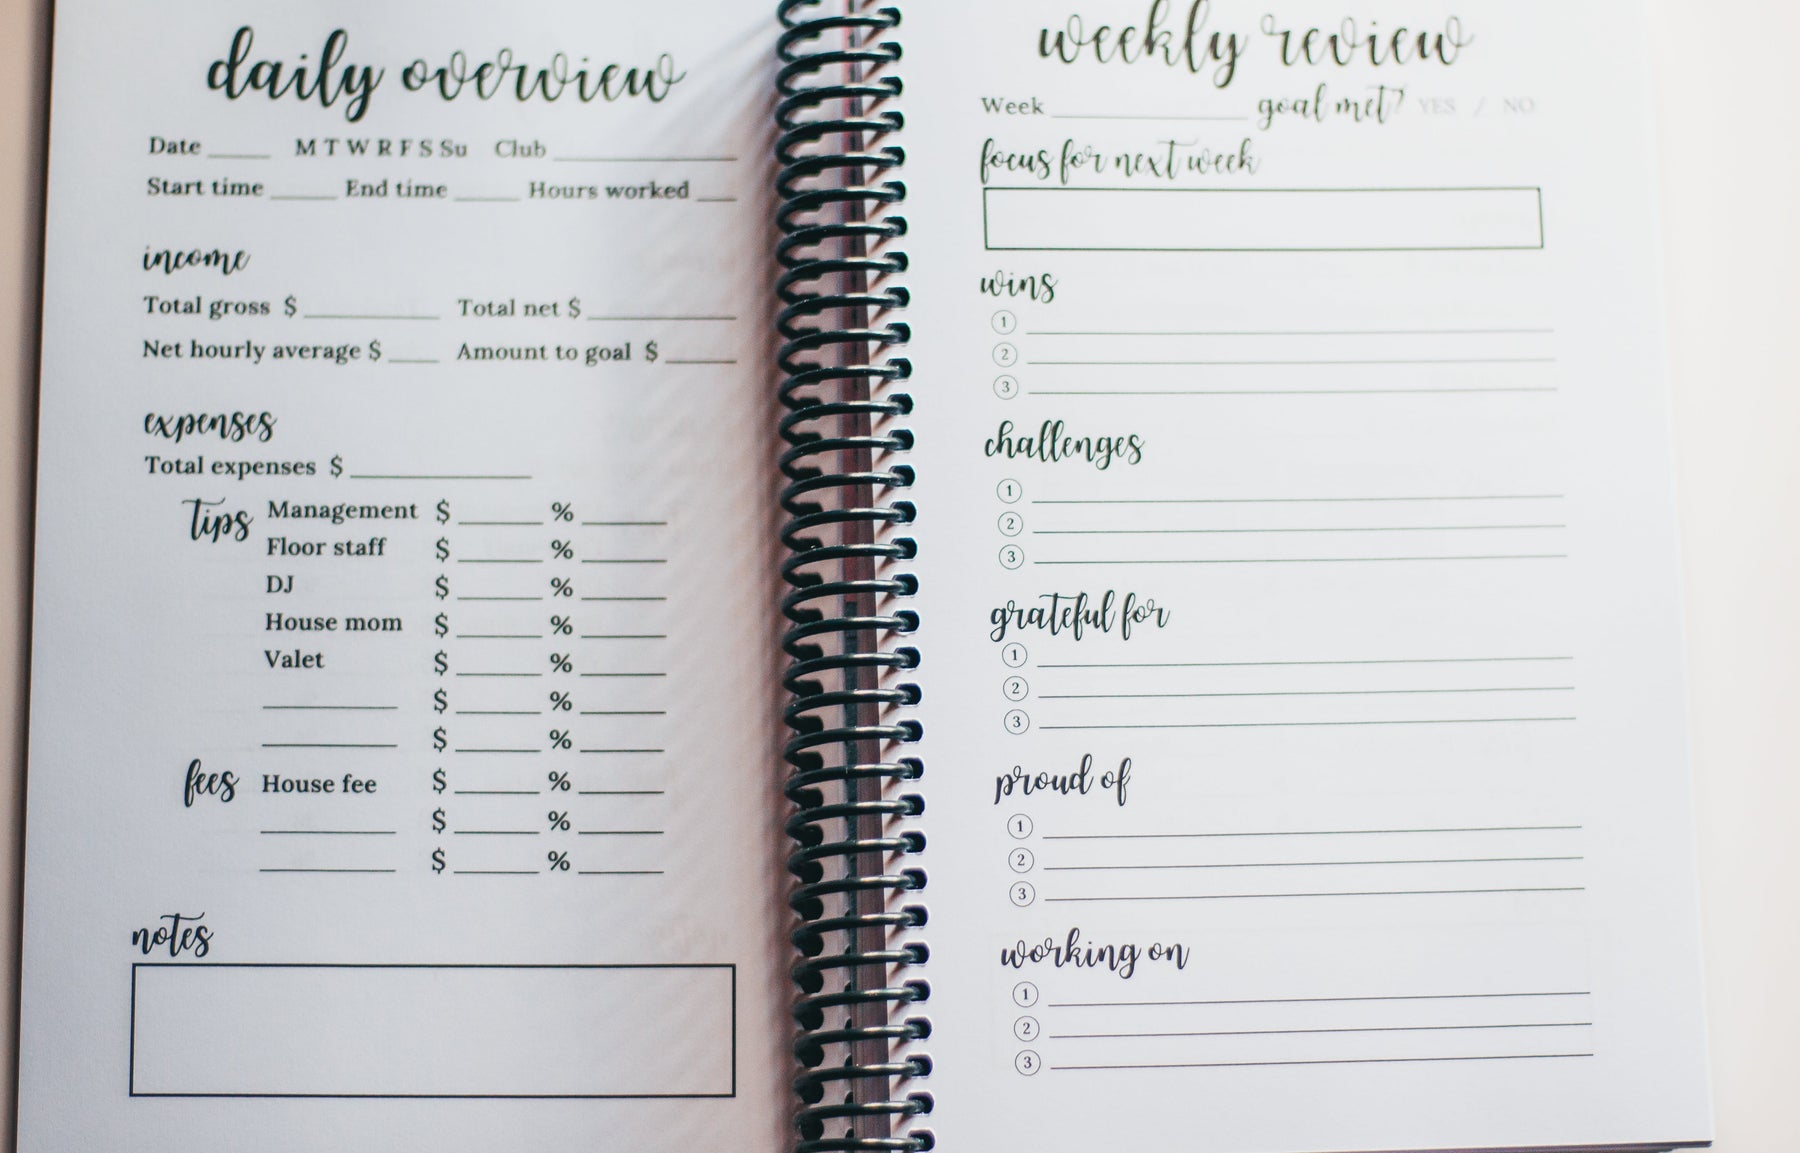 daily overview
Date ____ M T W R F S Su Club ____
Start time ____ End time ____ Hours worked ____
income
Total gross $ ____ Total net $ ____
Net hourly average $ ____ Amount to goal $ ____
expenses
Total expenses $ ____
tips Management $ ____ % ____
Floor staff $ ____ % ____
DJ $ ____ % ____
House mom $ ____ % ____
Valet $ ____ % ____
____ $ ____ % ____
____ $ ____ % ____
fees House fee $ ____ % ____
____ $ ____ % ____
____ $ ____ % ____
notes
weekly review
Week ____ goal met? YES / NO
focus for next week
wins
1 ____
2 ____
3 ____
challenges
1 ____
2 ____
3 ____
grateful for
1 ____
2 ____
3 ____
proud of
1 ____
2 ____
3 ____
working on
1 ____
2 ____
3 ____